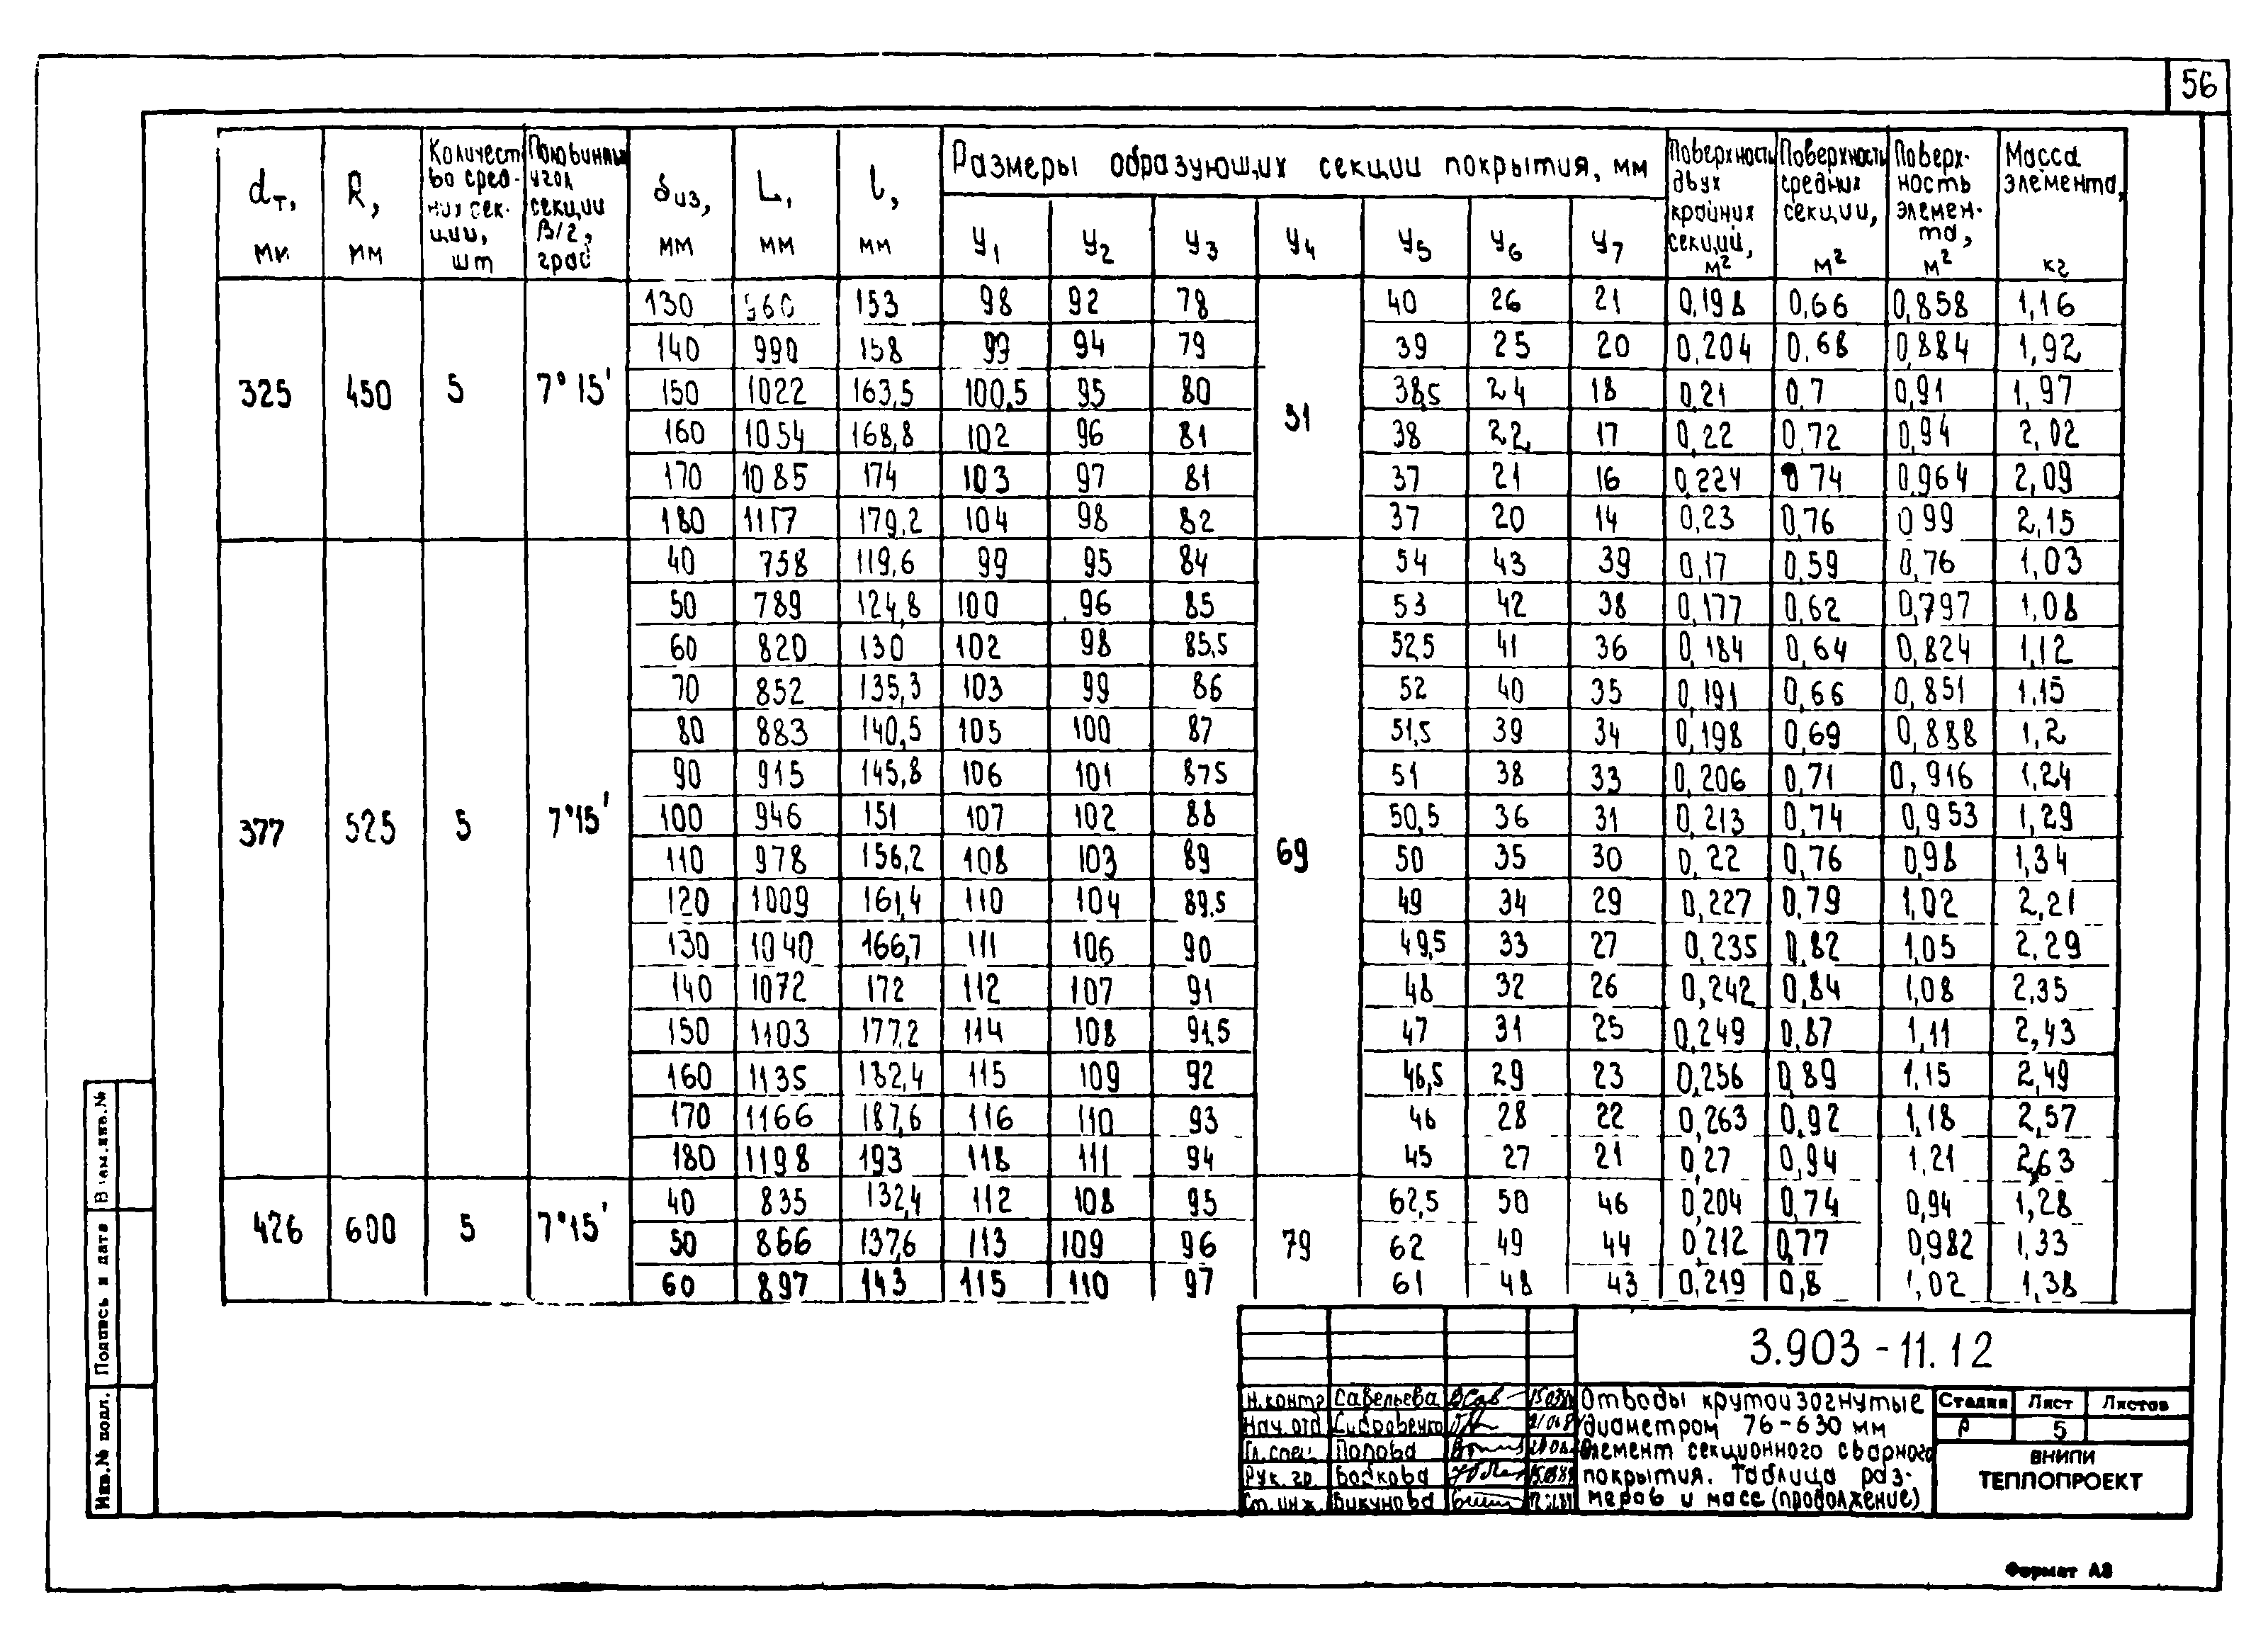 56
dт, мм R, мм Количест во сред- них сек- ции, шт Половинный угол секции β/2, град δиз, мм L, мм l, мм Размеры образующих секции покрытия, мм Поверхность двух крайних секций, м² Поверхность средних секции, м² Поверх- ность элемен- та, м² Масса элемента, кг
У1 У2 У3 У4 У5 У6 У7
325 450 5 7°15' 51
130 960 153 98 92 78 40 26 21 0,198 0,66 0,858 1,16
140 990 158 99 94 79 39 25 20 0,204 0,68 0,884 1,92
150 1022 163,5 100,5 95 80 38,5 24 18 0,21 0,7 0,91 1,97
160 1054 168,8 102 96 81 38 22 17 0,22 0,72 0,94 2,02
170 1085 174 103 97 81 37 21 16 0,224 0 74 0,964 2,09
180 1117 179,2 104 98 82 37 20 14 0,23 0,76 0 99 2,15
377 525 5 7°15' 69
40 758 119,6 99 95 84 54 43 39 0,17 0,59 0,76 1,03
50 789 124,8 100 96 85 53 42 38 0,177 0,62 0,797 1,08
60 820 130 102 98 85,5 52,5 41 36 0,184 0,64 0,824 1,12
70 852 135,3 103 99 86 52 40 35 0,191 0,66 0,851 1,15
80 883 140,5 105 100 87 51,5 39 34 0,198 0,69 0,888 1,2
90 915 145,8 106 101 875 51 38 33 0,206 0,71 0,916 1,24
100 946 151 107 102 88 50,5 36 31 0,213 0,74 0,953 1,29
110 978 156,2 108 103 89 50 35 30 0,22 0,76 0,98 1,34
120 1009 161,4 110 104 89,5 49 34 29 0,227 0,79 1,02 2,21
130 1040 166,7 111 106 90 49,5 33 27 0,235 0,82 1,05 2,29
140 1072 172 112 107 91 48 32 26 0,242 0,84 1,08 2,35
150 1103 177,2 114 108 91,5 47 31 25 0,249 0,87 1,11 2,43
160 1135 182,4 115 109 92 46,5 29 23 0,256 0,89 1,15 2,49
170 1166 187,6 116 110 93 46 28 22 0,263 0,92 1,18 2,57
180 1198 193 118 111 94 45 27 21 0,27 0,94 1,21 2,63
426 600 5 7°15' 79
40 835 132,4 112 108 95 62,5 50 46 0,204 0,74 0,94 1,28
50 866 137,6 113 109 96 62 49 44 0,212 0,77 0,982 1,33
60 897 143 115 110 97 61 48 43 0,219 0,8 1,02 1,38
3.903-11.12
Н.контр Савельева
Нач.отд Сидоровенко
Гл.спец. Попова
Рук.гр. Бобкова
Ст.инж. Викунова
Отводы крутоизогнутые
диаметром 76-630 мм
Элемент секционного сварного
покрытия. Таблица раз-
меров и масс (продолжение)
Стадия Лист Листов
Р 5
ВНИПИ
ТЕПЛОПРОЕКТ
Инв.№ подл. Подпись и дата Взам.инв.№
Формат А3